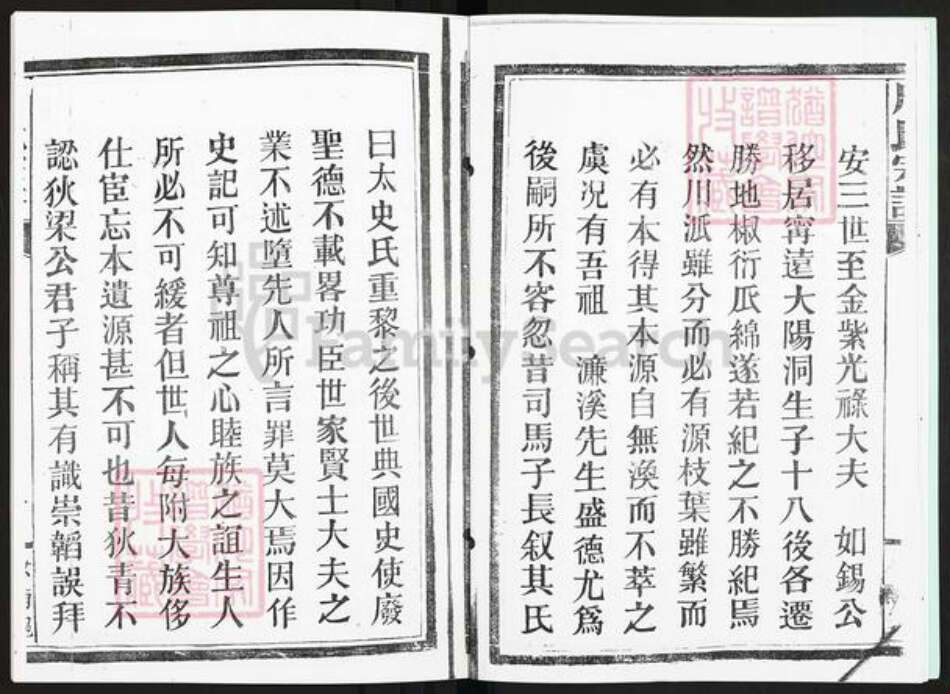 安三世至金紫光祿大夫　如錫公
移居甯遠大陽洞生子十八後各遷
勝地椒衍瓜綿遂若紀之不勝紀焉
然川派雖分而必有源枝葉雖繁而
必有本得其本源自無渙而不萃之
虞况有吾祖　濂溪先生盛德尤爲
後嗣所不容忽昔司馬子長叙其氏
曰太史氏重黎之後世典國史使廢
聖德不載畧功臣世家賢士大夫之
業不述墮先人所言罪莫大焉因作
史記可知尊祖之心睦族之誼生人
所必不可緩者但世人每附大族侈
仕宦忘本遺源甚不可也昔狄青不
認狄梁公君子稱其有識崇韜誤拜
FamilySearch